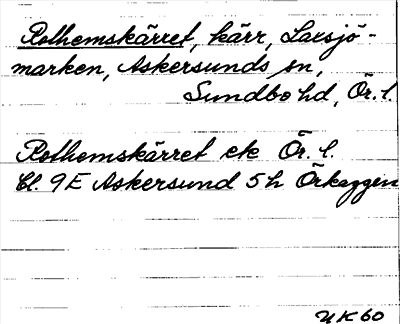 Rothemskärret, kärr, Laxsjö-
marken, Askersunds sn,
Sundbo hd, Ör. l.
Rothemskärret ek Ör. l.
Bl. 9E Askersund 5h Örkaggen
UK60